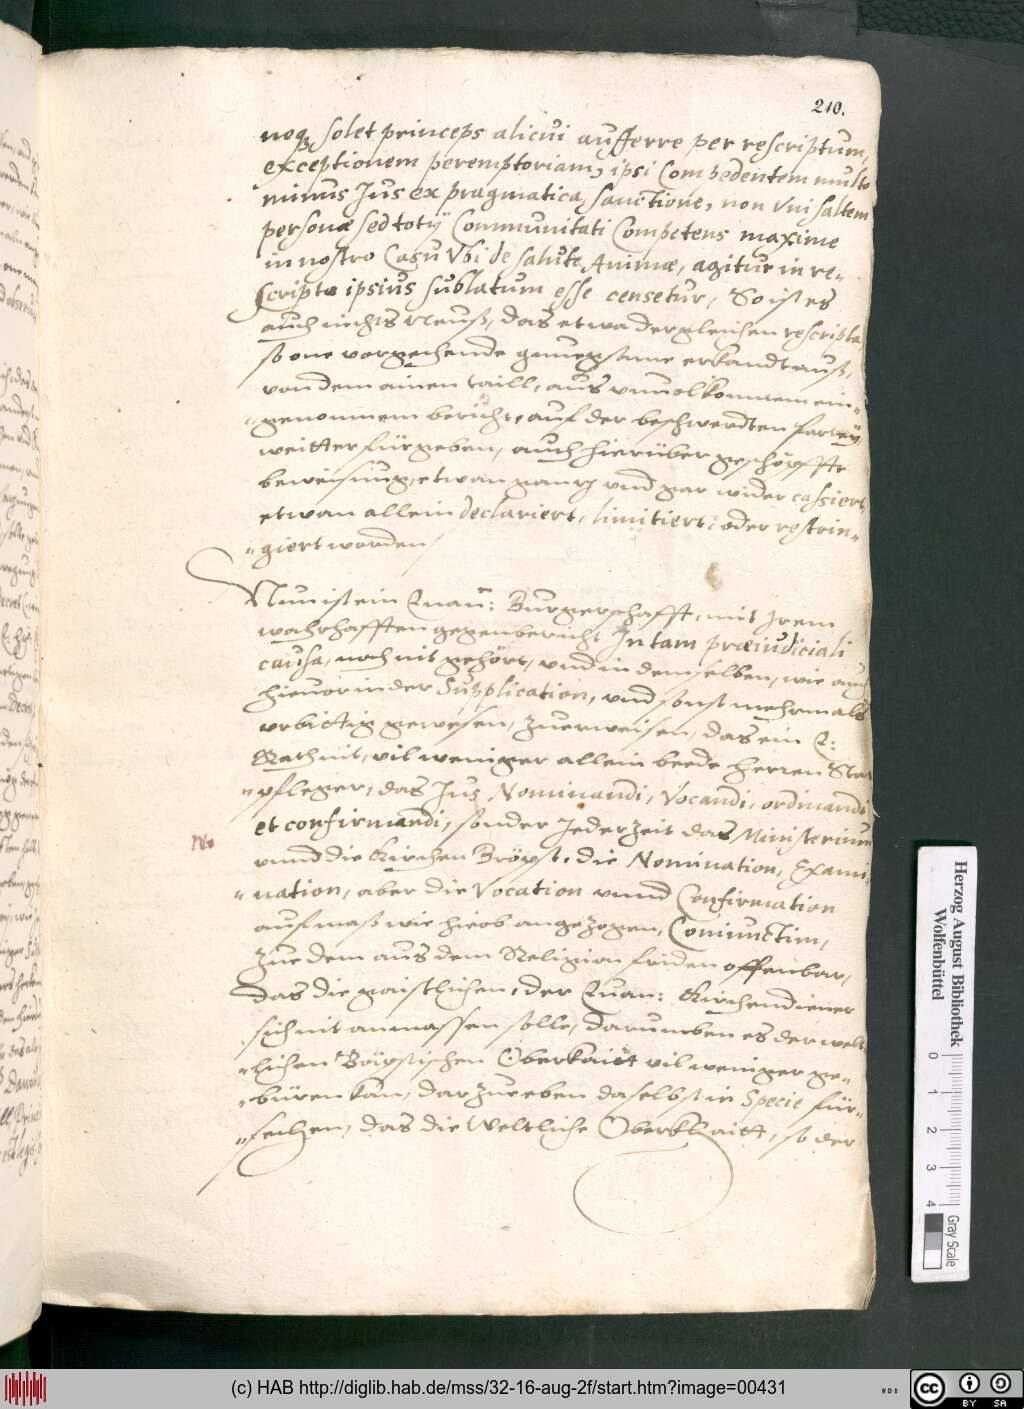 210.
noq, solet princeps alicui aufferre per rescriptum,
exceptionem peremptoriam, ipsi Compedentem multo
minus Jus ex pragmatica sanctione, non vni saltem
personæ sed totÿ Communitati Competens maxime
in nostro Casu Vbi de salute Animæ, agitur in re„
scripto ipsius sublatum esse censetur, So ist es
auch nichts neuß, das etwa dergleichen rescripta,
so one vorgehende genuegsame erkandtnuß,
von dem ainen taill, aus vnuolkomnem ein„
„genommem bericht, auf der beschwerdten partej
weitter fürgeben, auch hierüber geschöpffte
beweisung, etwan gantz vnd gar wider cassiert,
etwan allein declariert, limitiert, oder restrin„
„giert worden /
Nun ist ein Euan: Burgerschafft, mit Irem
wahrhafften gegenbericht In tam præiudiciali
causa, noch nit gehört, vnd in demselben, wie auch
hieuor in der Supplication, vnd sonst mehrmals
vrbittig gewesen, zuerweisen, das ein E:
Rath nit, vil weniger allein beede herren Stat
„pfleger, das Jus Nominandi, Vocandi, ordinandi
et confirmandi, sonder Jederzeit das Ministerium
No
vnnd die Kirchen Bröpst, die Nomination, Exami„
„nation, aber die Vocation vnnd Confirmation
auf maß wie hieob angezogen, Coniunctim,
Zue dem aus dem Religion friden offenbar,
das die gaistlichen, der Euan: Kirchendiener
sich nit anmassen solle, darumben es der welt„
„lichen Bäpstischen Oberkaitt vil weniger ge„
„büren kan, dar Zue eben daselbst in Specie für„
„sehen, das die Weltliche Oberkhaitt, so der
Herzog August Bibliothek
Wolfenbüttel
0 1 2 3 4
Gray Scale
(c) HAB http://diglib.hab.de/mss/32-16-aug-2f/start.htm?image=00431
WDB
cc BY SA